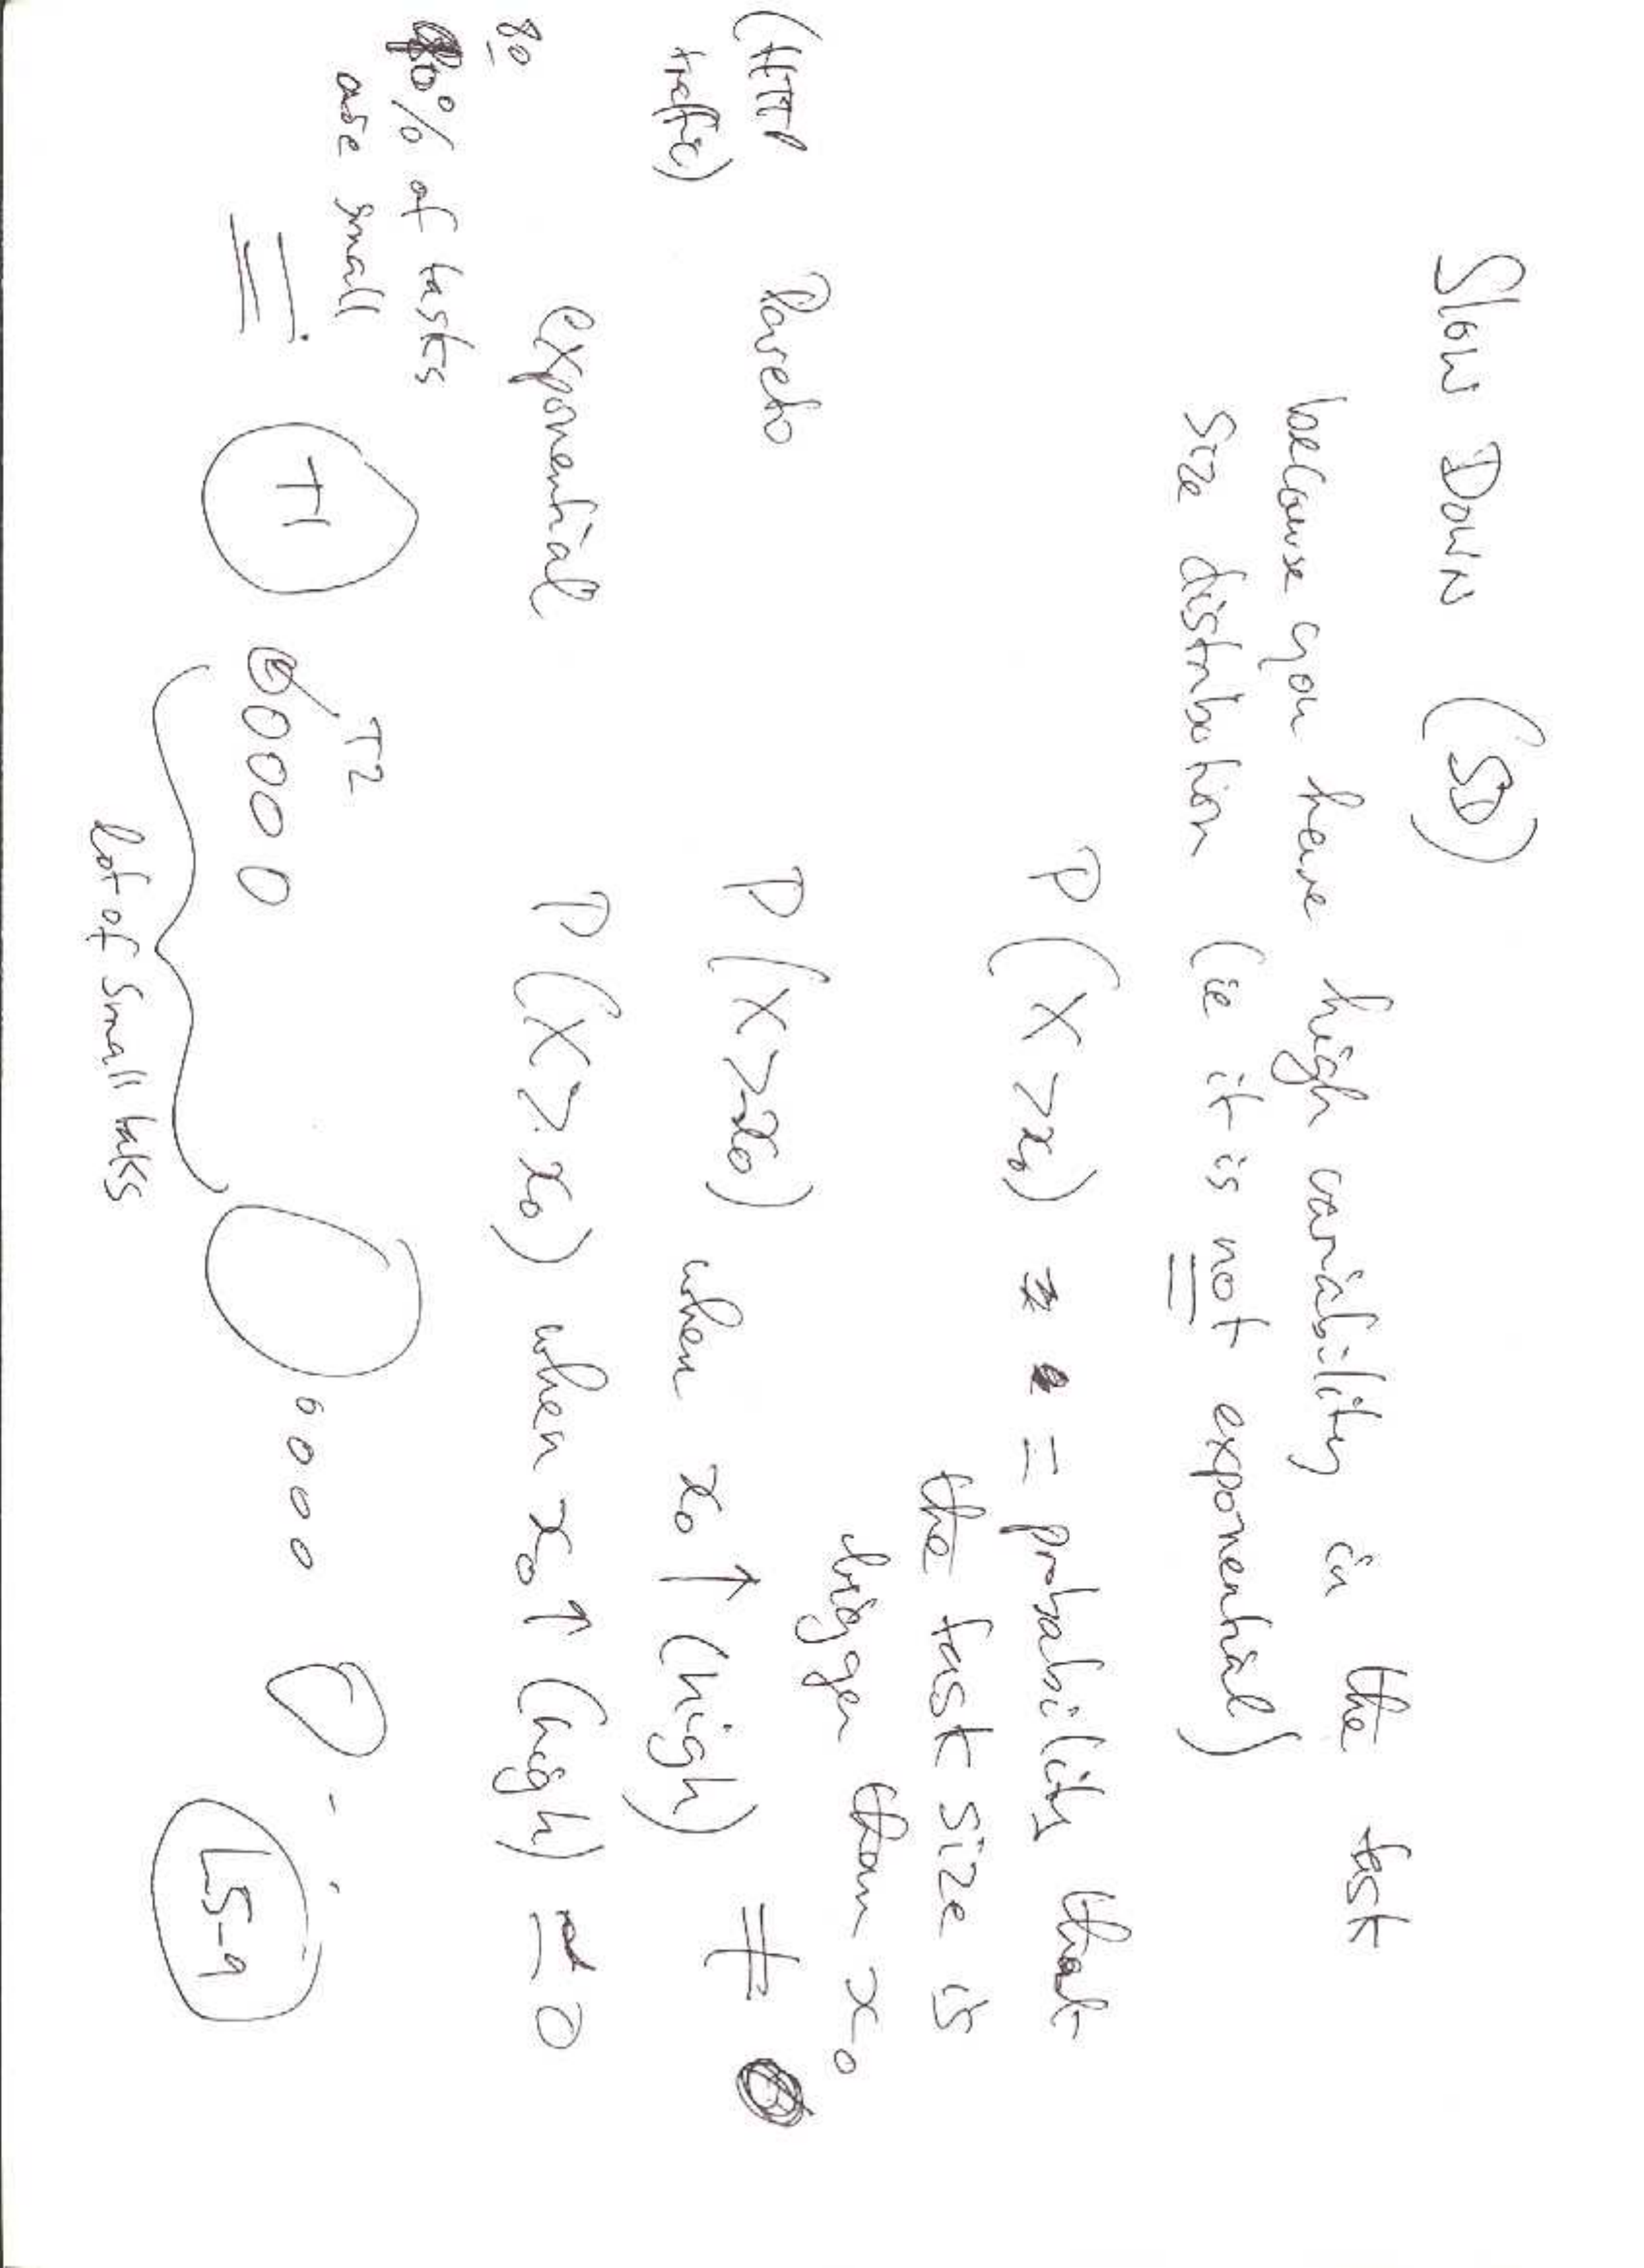 SLOW DOWN (SD)
because you have high variability in the task
size distribution (ie it is not exponential)
P(X > x₀) = probability that
the task size is
bigger than x₀
(HTTP
traffic)
Pareto P(X > x₀) when x₀ ↑ (high) ≠ 0
exponential P(X > x₀) when x₀ ↑ (high) ≃ 0
80
% of tasks
are small
T1
T2
lot of small taks
L5-9